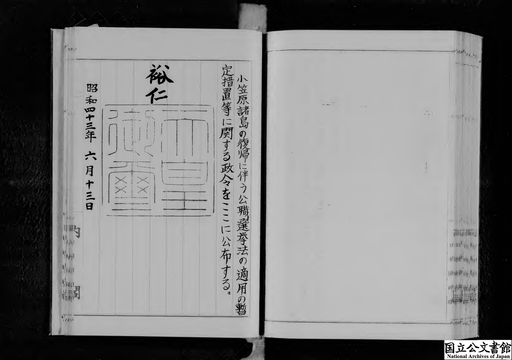 小笠原諸島の復帰に伴う公職選挙法の適用の暫
定措置等に関する政令をここに公布する。
裕仁
天皇
御璽
昭和四十三年 六月十三日
内閣
国立公文書館
National Archives of Japan